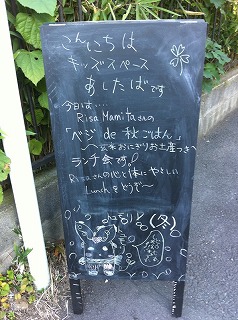 こんにちは
キッズスペース
あしたばです
今日は‥‥
Risa Mamitaさんの
「ベジ de 秋ごはん」
〜玄米おにぎりお土産つき〜
ランチ会です♪
Risaさんの心と体にやさしい
Lunchをどうぞ〜
(冬)